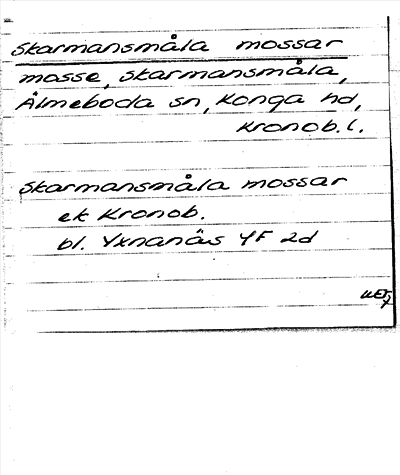 Skarmansmåla mossar
mosse, Skarmansmåla,
Älmeboda sn, Konga hd,
Kronob. l.
Skarmansmåla mossar
ek Kronob.
bl. Yxnanäs 4F 2d